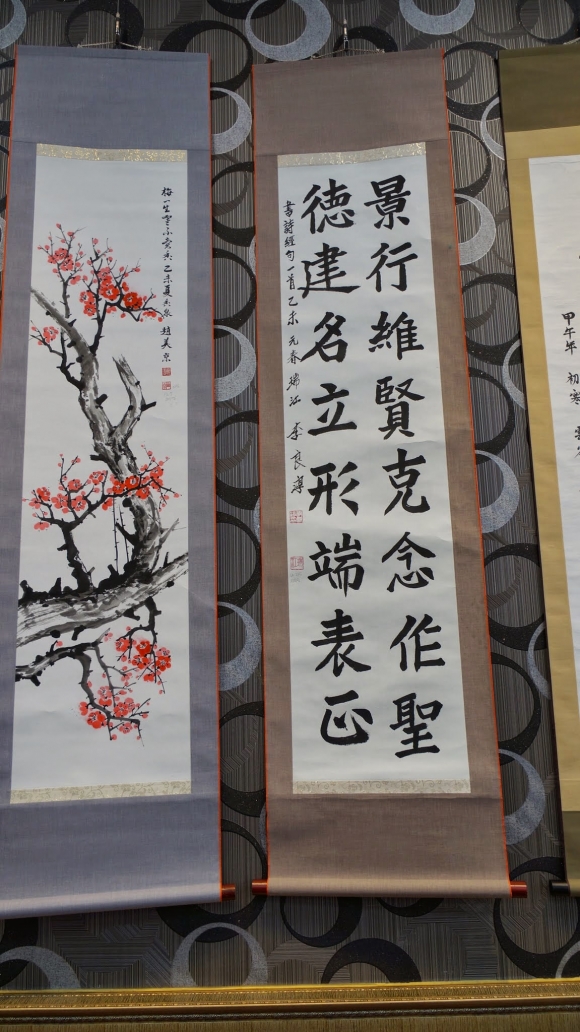 梅一生寒不賣香 乙未夏 趙美京
景行維賢克念作聖
徳建名立形端表正
書詩經句一首 乙未元春 李良
甲午年 初寒